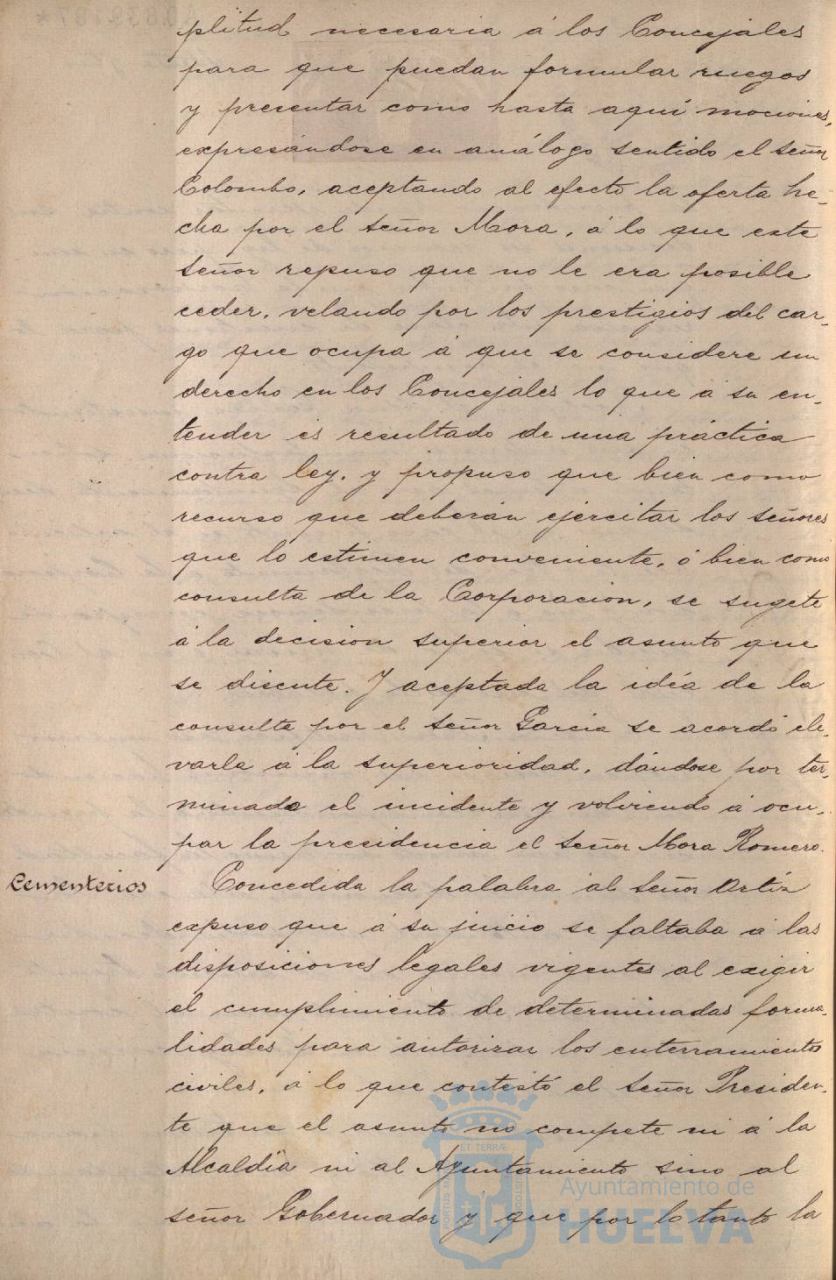 plitud necesaria á los Concejales
para que puedan formular ruegos
y presentar como hasta aquí mociones,
expresandose en análogo sentido el señor
Colombo, aceptando al efecto la oferta he-
cha por el señor Mora, á lo que este
señor repuso que no le era posible
ceder, velando por los prestigios del car-
go que ocupa á que se considere un
derecho en los Concejales lo que á su en-
tender es resultado de una práctica
contra ley, y propuso que bien como
recurso que deberán ejercitar los señores
que lo estimen conveniente, ó bien como
consulta de la Corporacion, se sugete
á la decision superior el asunto que
se discute. Y aceptada la idéa de la
consulta por el señor Garcia se acordó ele-
varla á la superioridad, dándose por ter-
minado el incidente y volviendo á ocu-
par la presidencia el señor Mora Romero.
Cementerios
Concedida la palabra al señor Ortiz
expuso que á su juicio se faltaba á las
disposiciones legales vigentes al exigir
el cumplimiento de determinadas forma-
lidades para autorizar los enterramientos
civiles, á lo que contestó el señor Presiden-
te que el asunto no compete ni á la
Alcaldía ni al Ayuntamiento sino al
señor Gobernador y que por lo tanto la
Ayuntamiento de
HUELVA